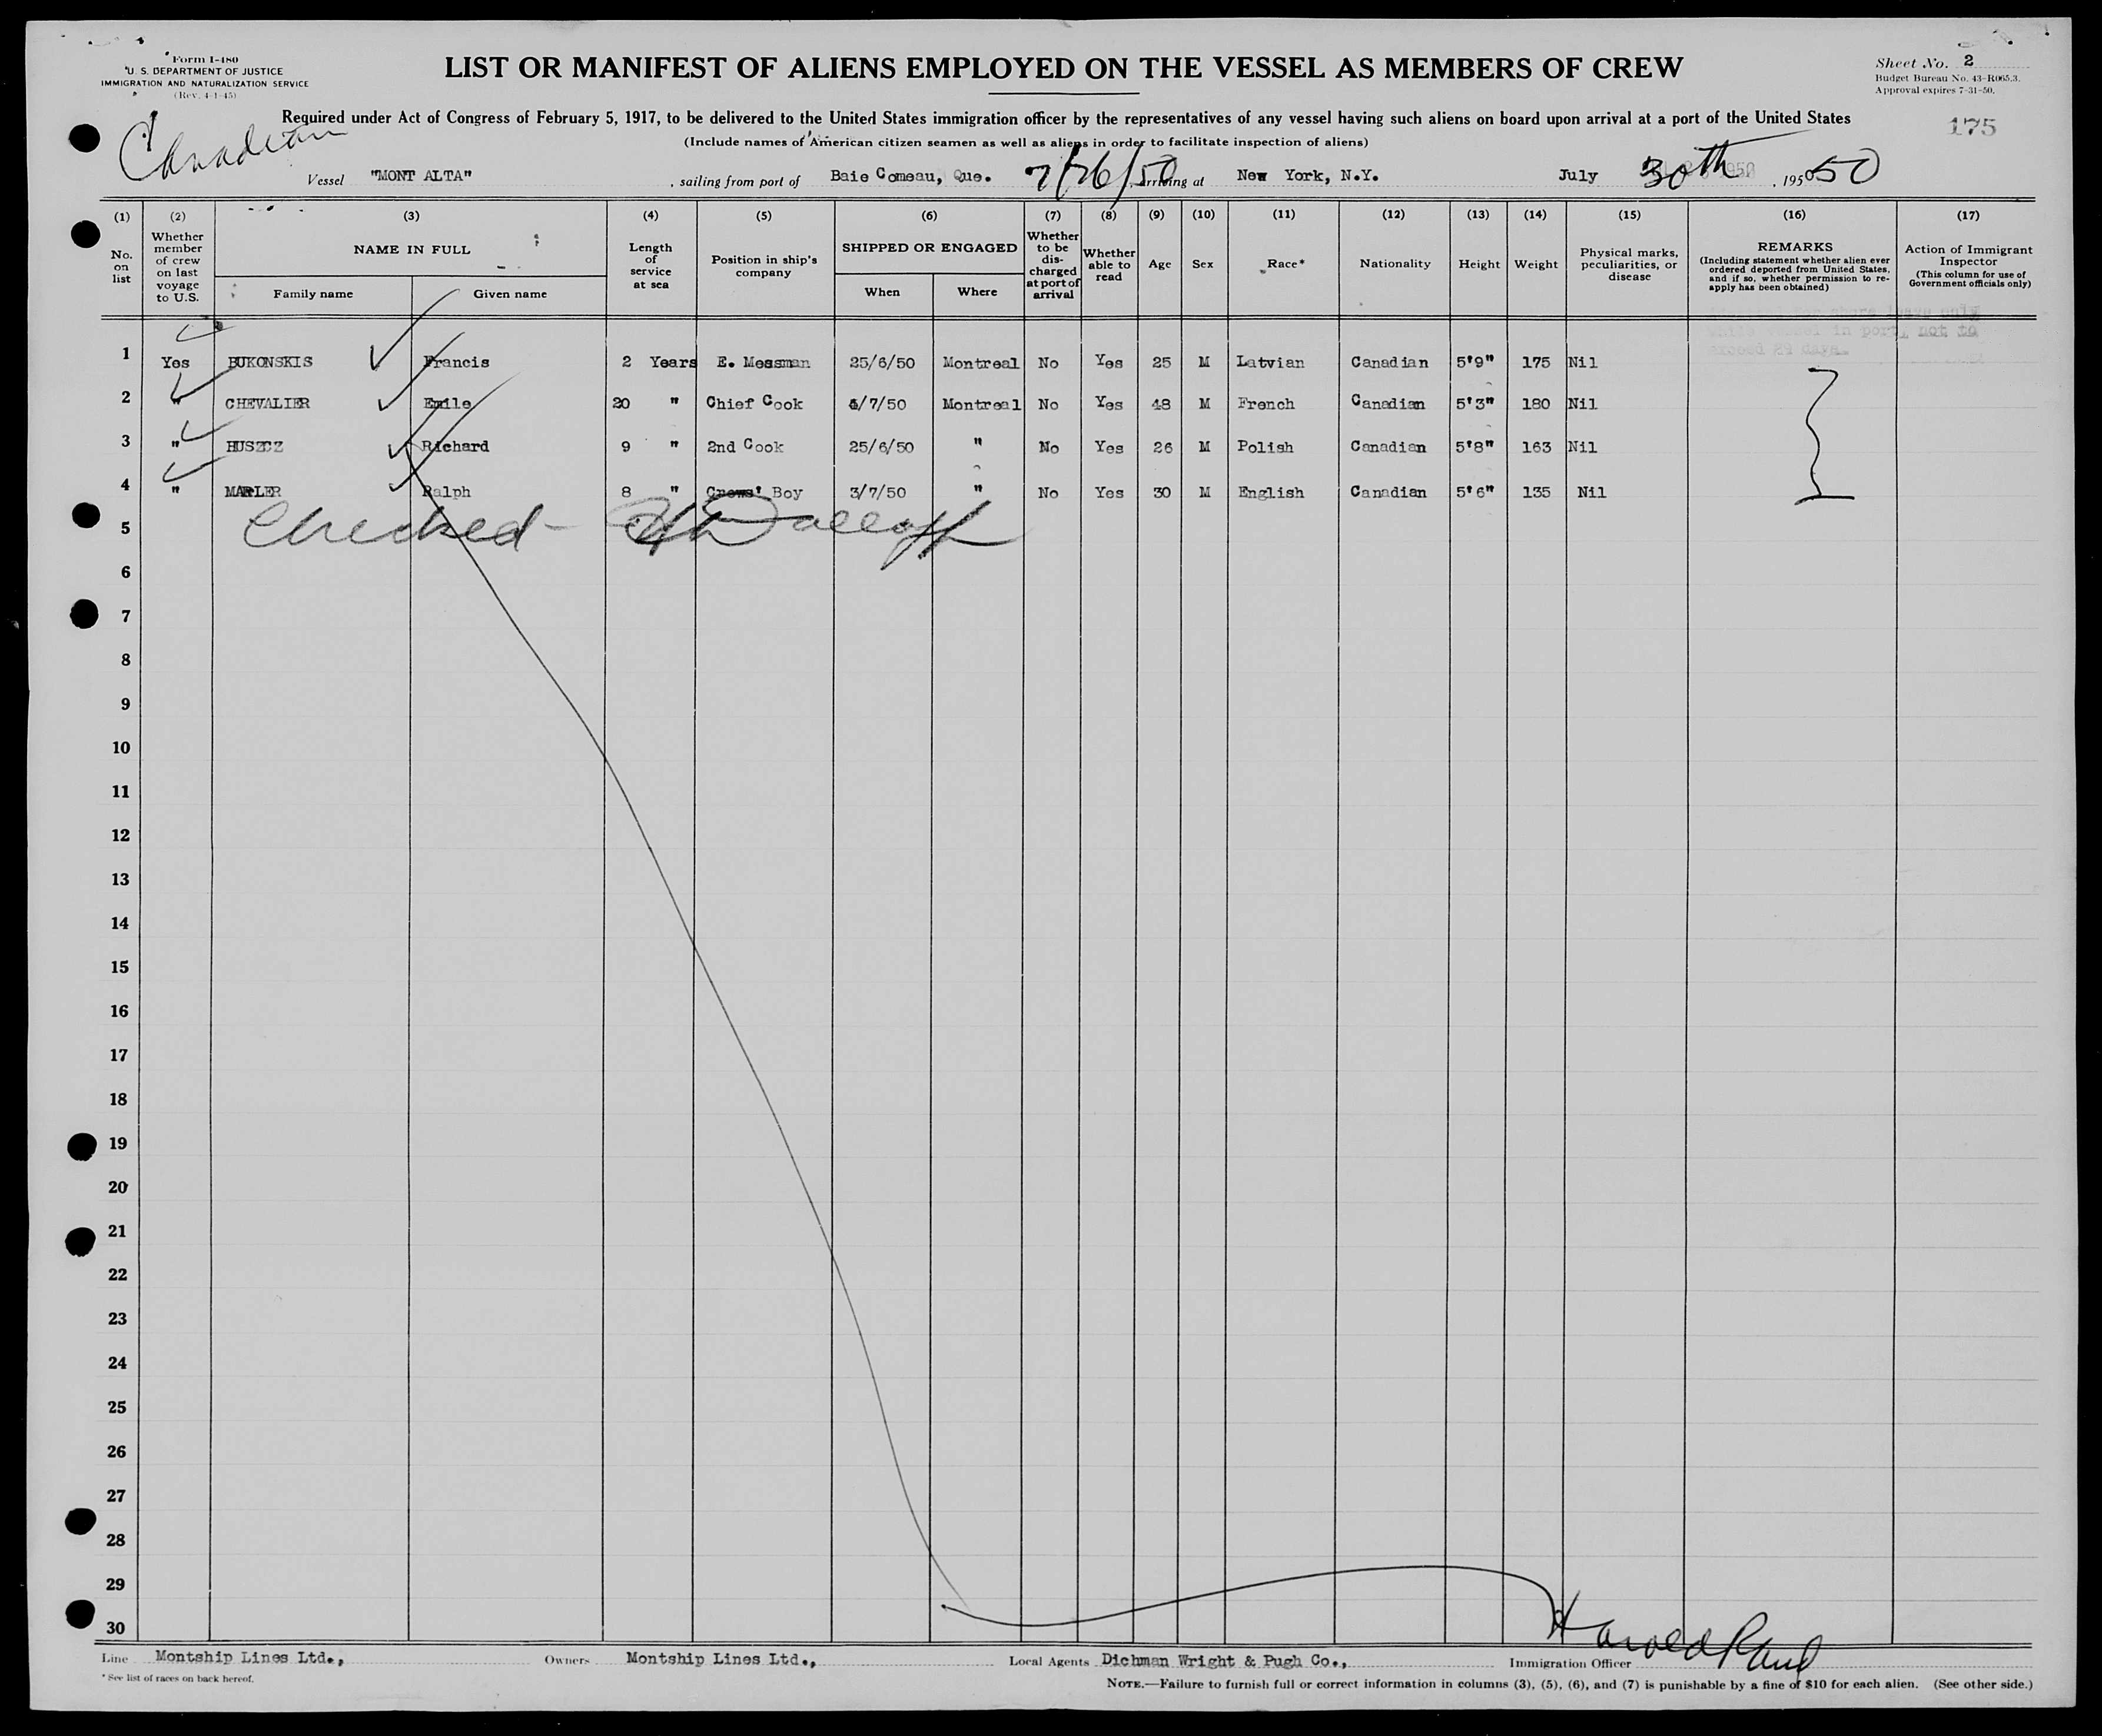 Form I-480
U. S. DEPARTMENT OF JUSTICE
IMMIGRATION AND NATURALIZATION SERVICE
(Rev. 4-1-45)
LIST OR MANIFEST OF ALIENS EMPLOYED ON THE VESSEL AS MEMBERS OF CREW
Sheet No. 2
Budget Bureau No. 43-R065.3.
Approval expires 7-31-50.
Required under Act of Congress of February 5, 1917, to be delivered to the United States immigration officer by the representatives of any vessel having such aliens on board upon arrival at a port of the United States
175
Canadian
(Include names of American citizen seamen as well as aliens in order to facilitate inspection of aliens)
Vessel "MONT ALTA", sailing from port of Baie Comeau, Que. 7/26/50, arriving at New York, N.Y. July 30th, 1950 50
(1) (2) (3) (4) (5) (6) (7) (8) (9) (10) (11) (12) (13) (14) (15) (16) (17)
No. on list
Whether member of crew on last voyage to U.S.
NAME IN FULL
Family name Given name
Length of service at sea
Position in ship's company
SHIPPED OR ENGAGED
When Where
Whether to be discharged at port of arrival
Whether able to read
Age Sex Race* Nationality Height Weight
Physical marks, peculiarities, or disease
REMARKS
(Including statement whether alien ever ordered deported from United States, and if so, whether permission to re-apply has been obtained)
Action of Immigrant Inspector
(This column for use of Government officials only)
shore leave only
while vessel in port, not to
exceed 29 days.
1 Yes BUKONSKIS Francis 2 Years E. Messman 25/6/50 Montreal No Yes 25 M Latvian Canadian 5'9" 175 Nil
2 " CHEVALIER Emile 20 " Chief Cook 6/7/50 Montreal No Yes 48 M French Canadian 5'3" 180 Nil
3 " HUSZCZ Richard 9 " 2nd Cook 25/6/50 " No Yes 26 M Polish Canadian 5'8" 163 Nil
4 " MARLER Ralph 8 " Crews' Boy 3/7/50 " No Yes 30 M English Canadian 5'6" 135 Nil
Checked -
5
6
7
8
9
10
11
12
13
14
15
16
17
18
19
20
21
22
23
24
25
26
27
28
29
30
Harold Rand
Line Montship Lines Ltd., Owners Montship Lines Ltd., Local Agents Dichman Wright & Pugh Co., Immigration Officer
* See list of races on back hereof.
NOTE.—Failure to furnish full or correct information in columns (3), (5), (6), and (7) is punishable by a fine of $10 for each alien. (See other side.)